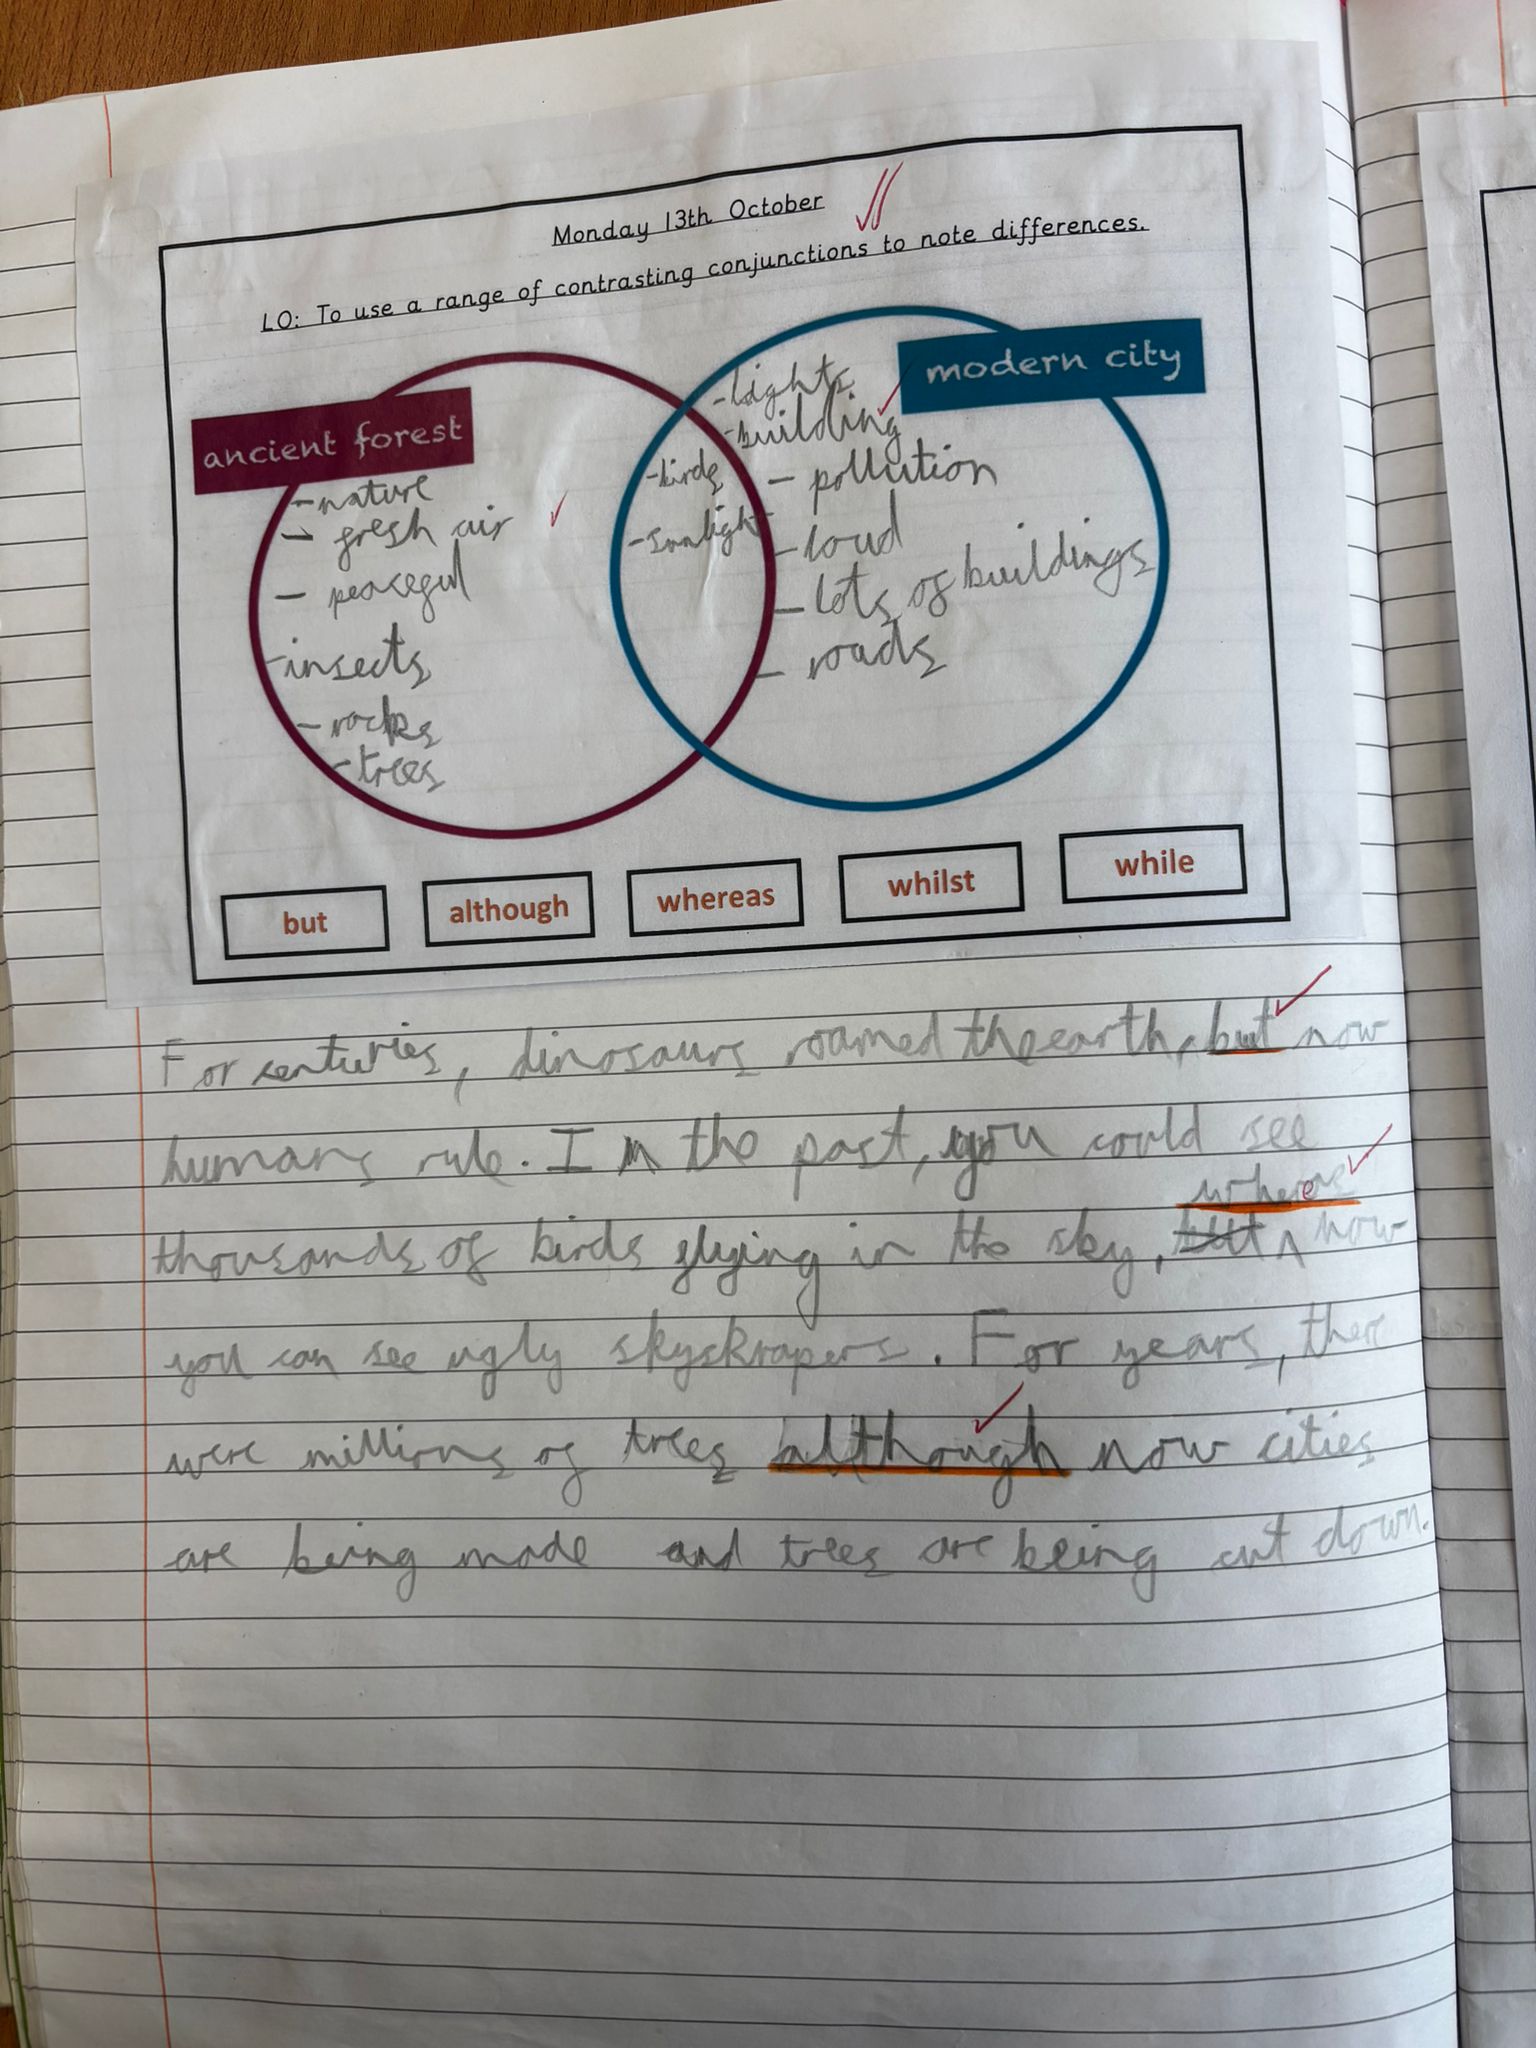 Monday 13th October
LO: To use a range of contrasting conjunctions to note differences.
ancient forest
- nature
- fresh air
- peaceful
- insects
- rocks
- trees
- birds
- sunlight
modern city
- lights
- building
- pollution
- loud
- lots of buildings
- roads
but
although
whereas
whilst
while
For centuries, dinosaurs roamed the earth, but now
humans rule. In the past, you could see
whereas
thousands of birds flying in the sky, but now
you can see ugly skyskrapers. For years, there
were millions of trees although now cities
are being made and trees are being cut down.